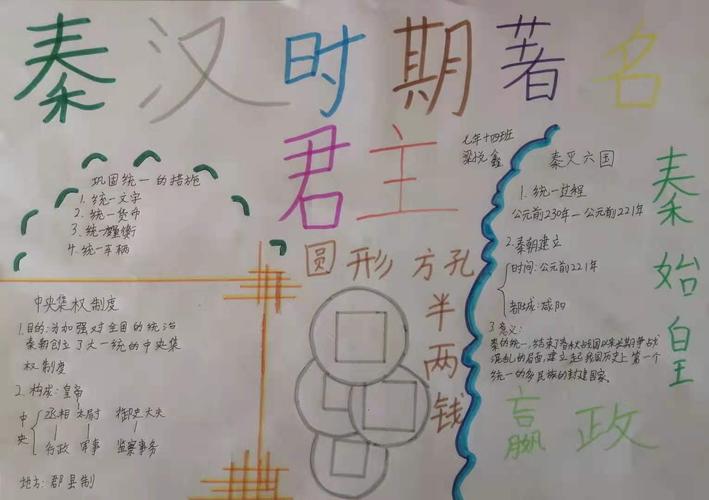 秦汉时期著名
君主
七年十四班
梁悦鑫
巩固统一的措施
1.统一文字
2.统一货币
3.统一衡
4.统一车辆
中央集权制度
1.目的:为加强对全国的统治
秦朝创立了大一统的中央集
权制度
2.构成:皇帝
中央
丞相 太尉 御史大夫
行政 军事 监察事务
地方:郡县制
圆形方孔
半两钱
秦灭六国
1.统一过程
公元前230年—公元前221年
2.秦朝建立
时间:公元前221年
都城:咸阳
3.意义:
秦的统一,结束了春秋战国以来长期争战
混乱的局面,建立起我国历史上第一个
统一的多民族的封建国家。
秦始皇
嬴政